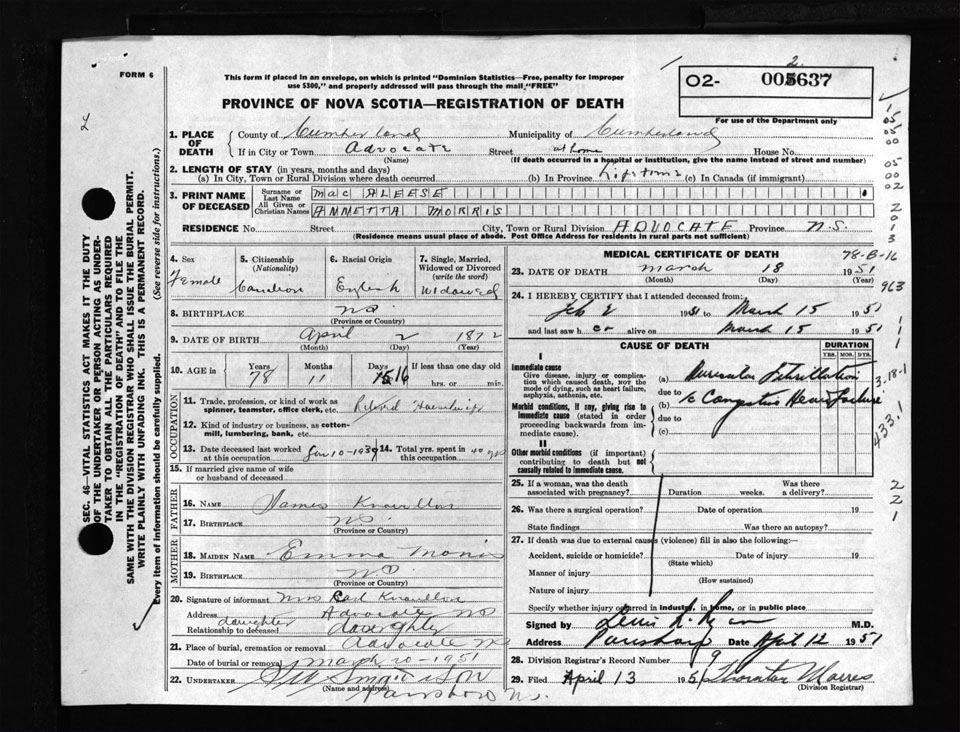 FORM 6
This form if placed in an envelope, on which is printed "Dominion Statistics—Free, penalty for improper
use $300," and properly addressed will pass through the mail "FREE"
PROVINCE OF NOVA SCOTIA—REGISTRATION OF DEATH
02- 005637
For use of the Department only
SEC. 46—VITAL STATISTICS ACT MAKES IT THE DUTY
OF THE UNDERTAKER OR PERSON ACTING AS UNDER-
TAKER TO OBTAIN ALL THE PARTICULARS REQUIRED
IN THE "REGISTRATION OF DEATH" AND TO FILE THE
SAME WITH THE DIVISION REGISTRAR WHO SHALL ISSUE THE BURIAL PERMIT.
WRITE PLAINLY WITH UNFADING INK. THIS IS A PERMANENT RECORD.
Every item of information should be carefully supplied. (See reverse side for instructions.)
1. PLACE OF DEATH County of Cumberland Municipality of Cumberland
If in City or Town Advocate Street at home House No.
(Name) (If death occurred in a hospital or institution, give the name instead of street and number)
2. LENGTH OF STAY (in years, months and days)
(a) In City, Town or Rural Division where death occurred (b) In Province Lifetime (c) In Canada (if immigrant)
3. PRINT NAME OF DECEASED Surname or Last Name MacALEESE
All Given or Christian Names ANNETTA MORRIS
RESIDENCE No. Street City, Town or Rural Division ADVOCATE Province N.S.
(Residence means usual place of abode. Post Office Address for residents in rural parts not sufficient)
4. Sex Female
5. Citizenship (Nationality) Canadian
6. Racial Origin English
7. Single, Married, Widowed or Divorced (write the word) Widowed
8. BIRTHPLACE NS
(Province or Country)
9. DATE OF BIRTH April 2 1872
(Month) (Day) (Year)
10. AGE in Years 78 Months 11 Days 16 If less than one day old hrs. or min.
OCCUPATION
11. Trade, profession, or kind of work as
spinner, teamster, office clerk, etc. Retired Housewife
12. Kind of industry or business, as cotton-
mill, lumbering, bank, etc.
13. Date deceased last worked at this occupation Jan 10-1939
14. Total yrs. spent in this occupation 40 yrs
15. If married give name of wife
or husband of deceased
FATHER
16. NAME James
17. BIRTHPLACE NS
(Province or Country)
MOTHER
18. MAIDEN NAME Emma Morris
19. BIRTHPLACE NS
(Province or Country)
20. Signature of informant Mrs Earl
Address Advocate NS
daughter
Relationship to deceased daughter
21. Place of burial, cremation or removal Advocate NS
Date of burial or removal March 20-1951
22. UNDERTAKER
(Name and address) Parrsboro NS.
MEDICAL CERTIFICATE OF DEATH 78-B-16
23. DATE OF DEATH March 18 1951
(Month) (Day) (Year)
963
24. I HEREBY CERTIFY that I attended deceased from:
Feb 2 1951 to March 15 1951
and last saw her alive on March 15 1951
CAUSE OF DEATH DURATION
YRS. MOS. DYS.
I
Immediate cause
Give disease, injury or complica-
tion which caused death, not the
mode of dying, such as heart failure,
asphyxia, asthenia, etc.
(a) Auricular Fibrillation
due to
(b) Congestive Heart Failure
due to
(c)
3-18-1
433.1
Morbid conditions, if any, giving rise to
immediate cause (stated in order
proceeding backwards from im-
mediate cause).
II
Other morbid conditions (if important)
contributing to death but not
causally related to immediate cause.
25. If a woman, was the death Was there
associated with pregnancy? Duration weeks. a delivery?
26. Was there a surgical operation? Date of operation 19
State findings Was there an autopsy?
27. If death was due to external causes (violence) fill in also the following:
Accident, suicide or homicide? Date of injury 19
(State which)
Manner of injury
(How sustained)
Nature of injury
Specify whether injury occurred in industry, in home, or in public place
Signed by M.D.
Address Parrsboro Date April 12 1951
28. Division Registrar's Record Number 9
29. Filed April 13 1951 Thornton Morris
(Division Registrar)